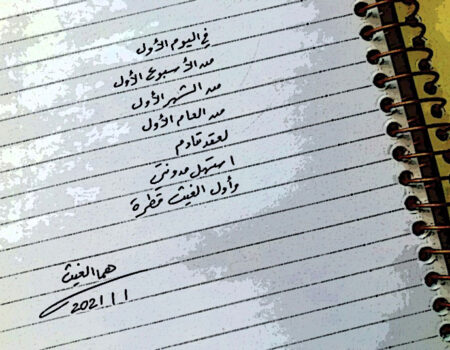 في اليوم الأول
من الأسبوع الأول
من الشهر الأول
من العام الأول
لعقد قادم
استهل مدونتي
وأول الغيث قطرة
هما الغيث
2021 1 1